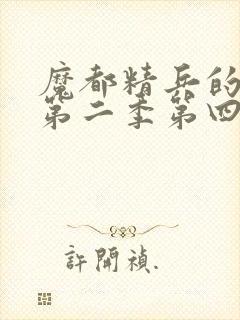 魔都精兵的
第二季第四
許開禎.